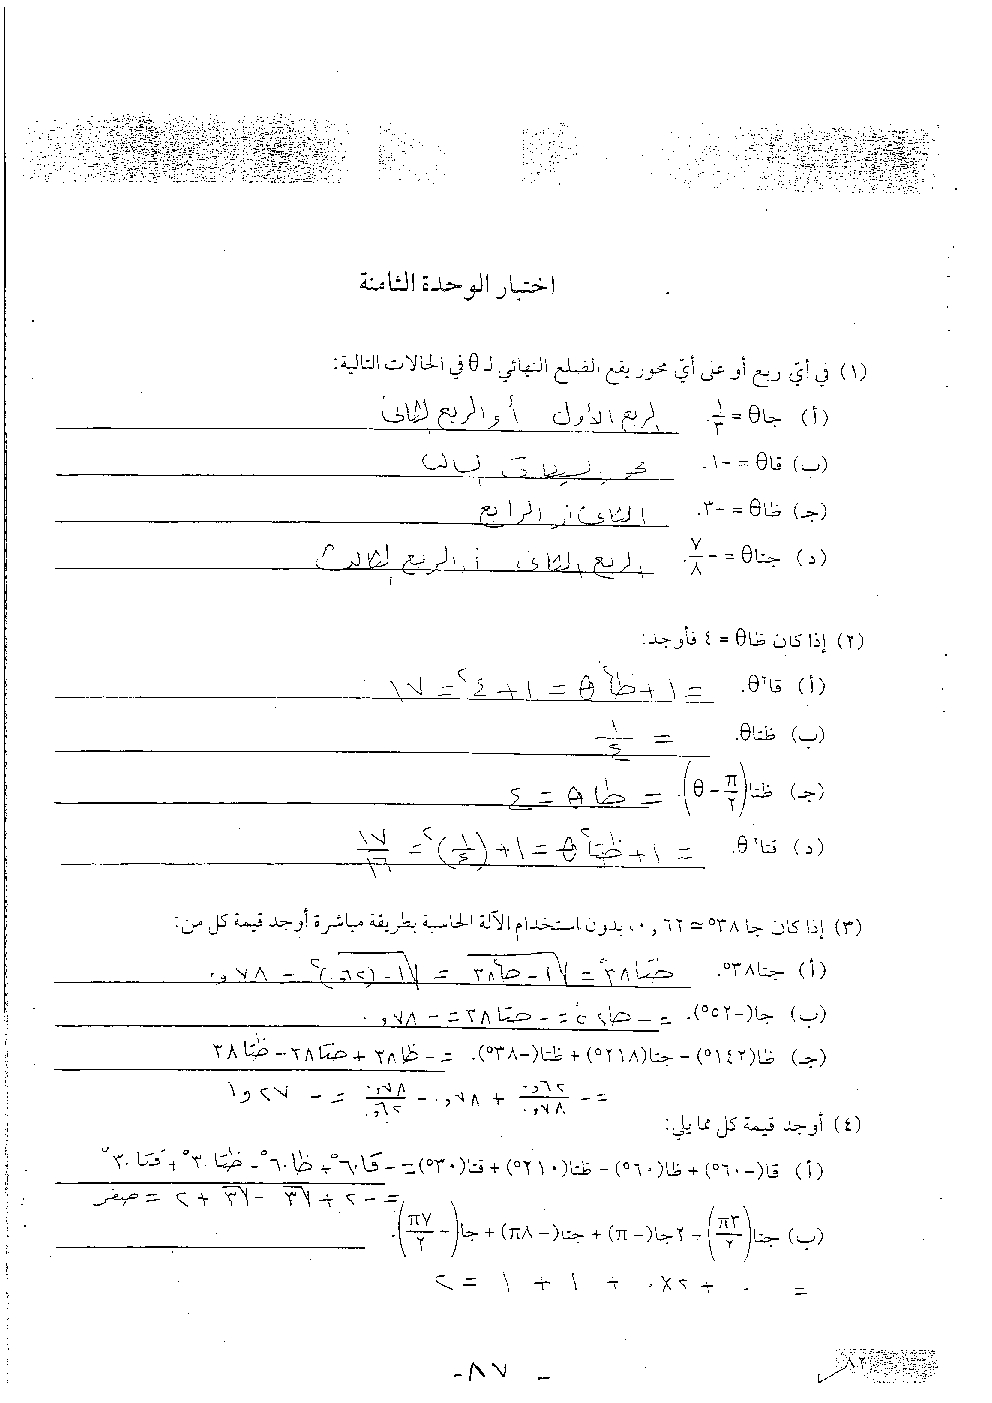 اختبار الوحدة الثامنة
(١) في أيّ ربع أو على أيّ محور يقع الضلع النهائي لـ θ في الحالات التالية:
(أ) جاθ = ١/٣. الربع الأول أو الربع الثاني
(ب) قاθ = -١. محور السينات السالب
(جـ) ظاθ = -٣. الثاني أو الرابع
(د) جتاθ = -٧/٨. الربع الثاني أو الربع الثالث
(٢) إذا كان ظاθ = ٤ فأوجد:
(أ) قا²θ. = ١ + ظا²θ = ١ + ٤² = ١٧
(ب) ظتاθ. = ١/٤
(جـ) ظتا(π/٢ - θ). = ظاθ = ٤
(د) قتا²θ. = ١ + ظتا²θ = ١ + (١/٤)² = ١٧/١٦
(٣) إذا كان جا ٣٨° = ٠,٦٢، بدون استخدام الآلة الحاسبة بطريقة مباشرة أوجد قيمة كل من:
(أ) جتا٣٨°. جتا٣٨° = √(١ - جا²٣٨) = √(١ - (٠,٦٢)²) = ٠,٧٨
(ب) جا(-٥٢°). = - جا٥٢ = - جتا٣٨ = - ٠,٧٨
(جـ) ظا(١٤٢°) - جتا(٢١٨°) + ظتا(-٣٨°). = - ظا٣٨ + جتا٣٨ - ظتا٣٨
= - ٠,٦٢/٠,٧٨ + ٠,٧٨ - ٠,٧٨/٠,٦٢ = - ١,٢٧
(٤) أوجد قيمة كل مما يلي:
(أ) قا(-٦٠°) + ظا(٦٠°) - ظتا(٢١٠°) + قتا(٣٠°) = - قا٦٠° + ظا٦٠° - ظتا٣٠° + قتا٣٠°
= - ٢ + √٣ - √٣ + ٢ = صفر
(ب) جتا(٣π/٢) - ٢جا(-π) + جتا(-٨π) + جا(-٧π/٢).
= ٠ + ٢×٠ + ١ + ١ = ٢
- ٨٧ -
٨٢